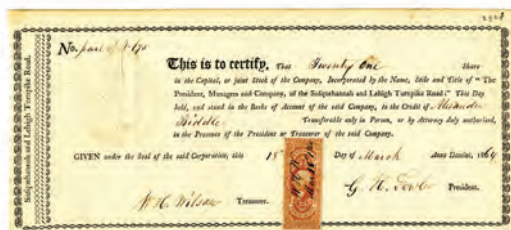 2928
No. part of
This is to certify, That Twenty One Share
in the Capital, or joint Stock of the Company, Incorporated by the Name, Stile and Title of "The
President, Managers and Company, of the Susquehannah and Lehigh Turnpike Road:" This Day
held, and stand in the Books of Account of the said Company, to the Credit of Alexander
Biddle Transferable only in Person, or by Attorney duly authorised,
in the Presence of the President or Treasurer of the said Company.
GIVEN under the Seal of the said Corporation, this 15 Day of March Anno Domini, 1864
W. H. Wilson Treasurer. G. H. President.
Susquehannah and Lehigh Turnpike Road.